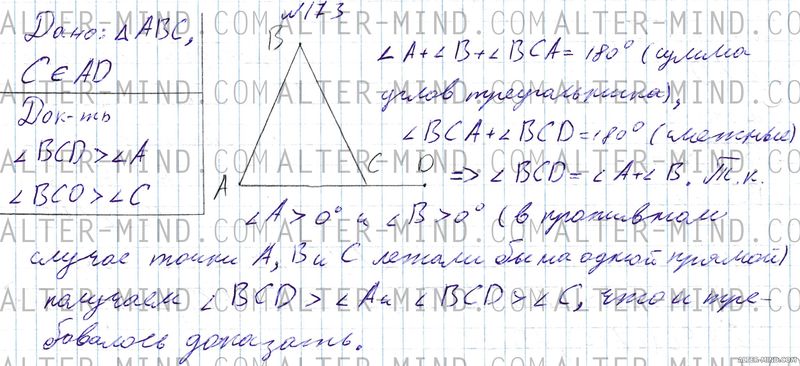 №173
Дано: ∠ABC,
C ∈ AD
Док-ть
∠BCD > ∠A
∠BCD > ∠C
B
A
C
D
∠A + ∠B + ∠BCA = 180° (сумма
углов треугольника),
∠BCA + ∠BCD = 180° (смежные)
=> ∠BCD = ∠A + ∠B. Т.к.
∠A > 0° и ∠B > 0° (в противном
случае точки A, B и C лежали бы на одной прямой)
получаем ∠BCD > ∠A и ∠BCD > ∠C, что и тре-
бовалось доказать.
ALTER-MIND.COM